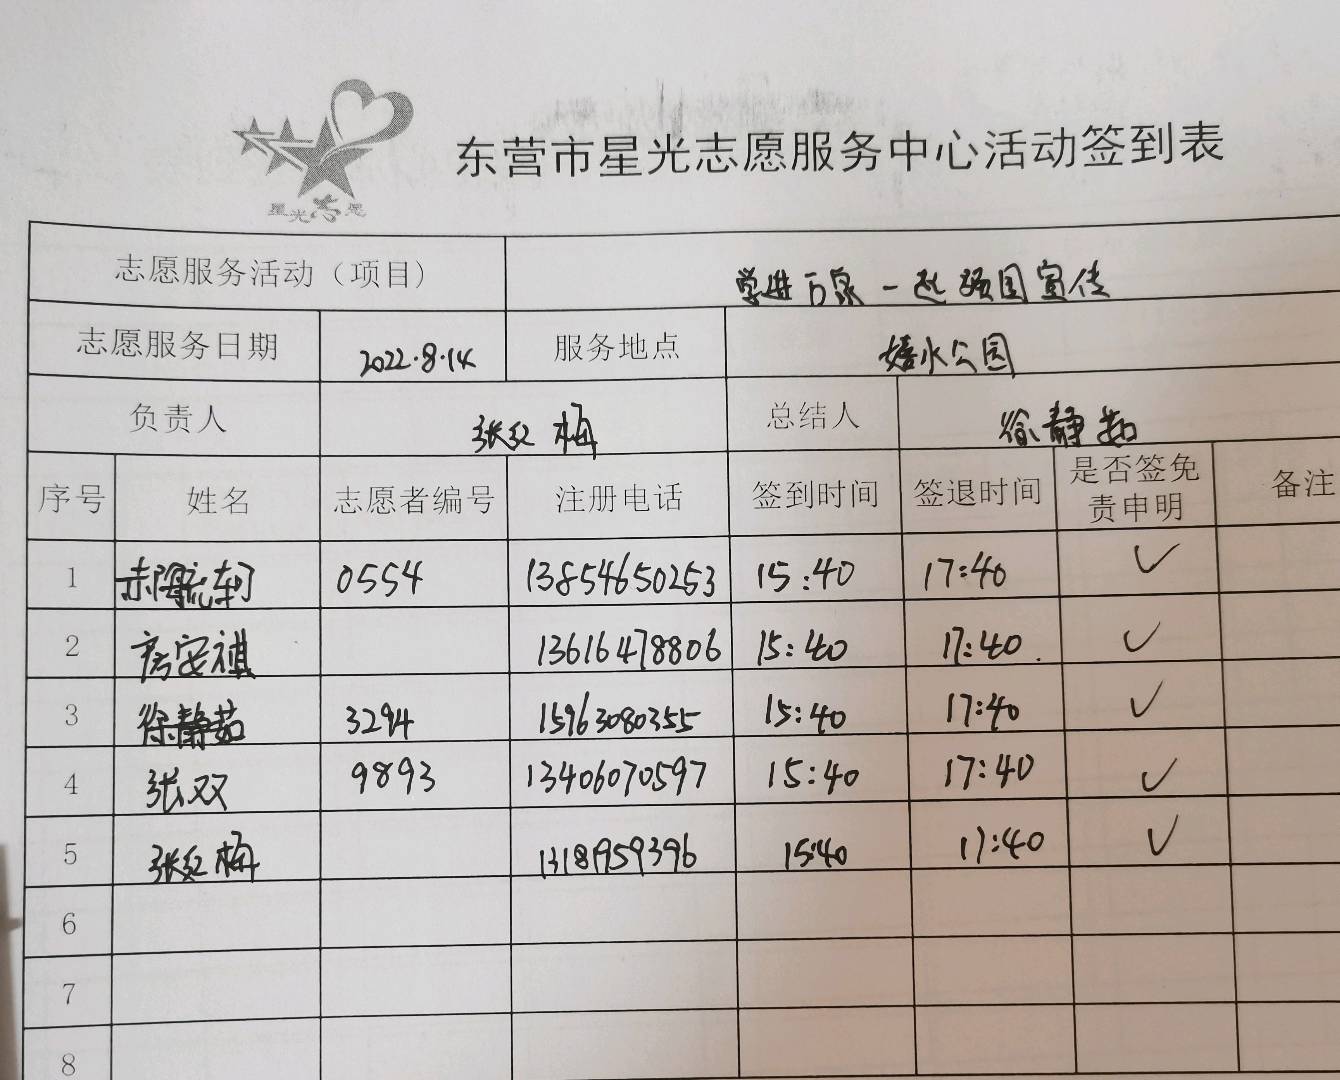 星光志愿
东营市星光志愿服务中心活动签到表
志愿服务活动（项目） 学进万家一起强国宣传
志愿服务日期 2022.8.14 服务地点 嬉水公园
负责人 张红梅 总结人 徐静茹
序号 姓名 志愿者编号 注册电话 签到时间 签退时间 是否签免责申明 备注
1 0554 13854650253 15:40 17:40 ✓
2 房安祺 13616478806 15:40 17:40 ✓
3 徐静茹 3294 15963080355 15:40 17:40 ✓
4 张双 9893 13406070597 15:40 17:40 ✓
5 张红梅 13181959396 15:40 17:40 ✓
6
7
8